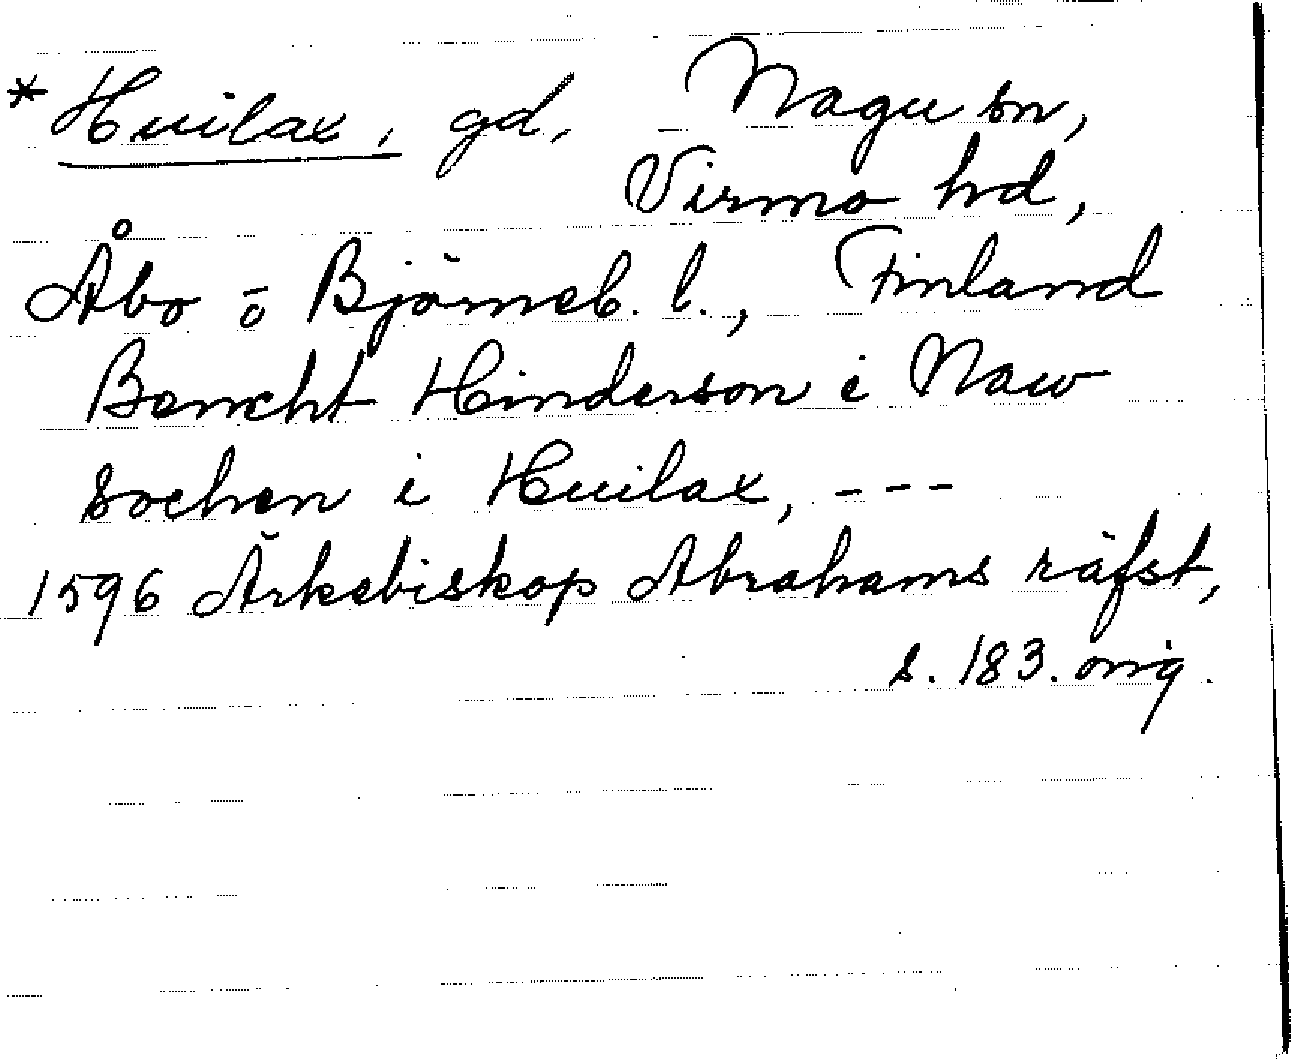 * Huilax, gd, Nagu sn,
Virmo hd,
Åbo o Björneb. l., Finland
Bencht Hinderson i Naw
sochen i Huilax, ---
1596 Ärkebiskop Abrahams räfst,
s. 183. orig.